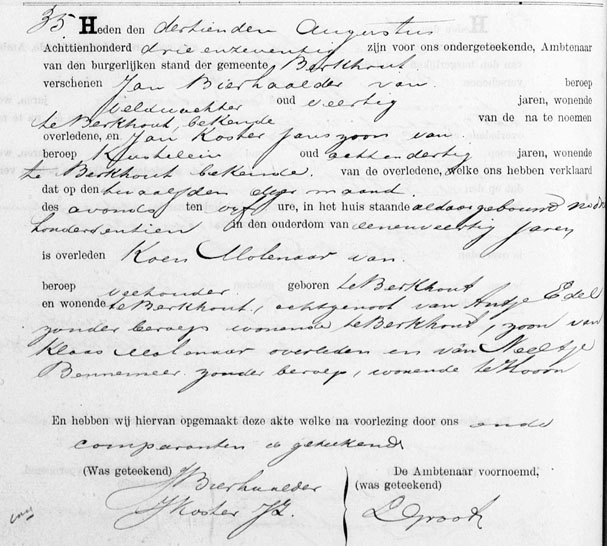 35 Heden den dertienden Augustus
Achttienhonderd drie en zeventig zijn voor ons ondergeteekende, Ambtenaar
van den burgerlijken stand der gemeente Berkhout
verschenen Jan Bierhaalder van
beroep
veldwachter oud veertig jaren, wonende
te Berkhout, bekende van de na te noemen
overledene, en Jan Koster Janszoon van
beroep Kastelein oud achtendertig jaren, wonende
te Berkhout bekende. van de overledene, welke ons hebben verklaard
dat op den twaalfden dezer maand
des avonds ten vijf ure, in het huis staande aldaar gebouwd no
honderdentien in den ouderdom van eenenveertig jaren
is overleden Koen Molenaar van
beroep veehouder geboren te Berkhout
en wonende te Berkhout, echtgenoot van Antje Edel
zonder beroep wonende te Berkhout, zoon van
Klaas Molenaar overleden en van Neeltje
Bennemeer zonder beroep, wonende te Hoorn
En hebben wij hiervan opgemaakt deze akte welke na voorlezing door ons ende
comparanten is geteekend
(Was geteekend) De Ambtenaar voornoemd,
(was geteekend)
J Bierhaalder
J Koster Jz. L Groot